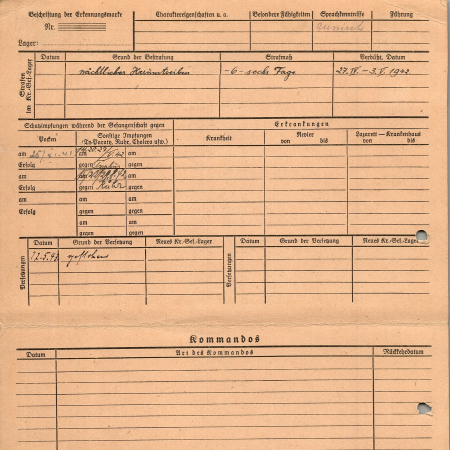 Beschriftung der Erkennungsmarke
Nr.
Lager:
Charaktereigenschaften u. a.
Besondere Fähigkeiten
Sprachkenntnisse
Führung
Strafen im Kr.-Gef.-Lager
Datum
Grund der Bestrafung
Strafmaß
Verbüßt, Datum
nächtliches Herumtreiben
-6- sechs Tage
27.IV. - 3.V. 1942
Schutzimpfungen während der Gefangenschaft gegen
Erkrankungen
Pocken
Sonstige Impfungen
(Ty-Paraty, Ruhr, Cholera usw.)
Krankheit
Revier
von bis
Lazarett-Krankenhaus
von bis
am
am
am
Erfolg
gegen
gegen
am
am
am
Erfolg
gegen Ruhr
gegen
am
am
am
Erfolg
gegen
gegen
am
am
gegen
gegen
Versetzungen
Datum
Grund der Versetzung
Neues Kr.-Gef.-Lager
Versetzungen
Datum
Grund der Versetzung
Neues Kr.-Gef.-Lager
geflohen
Kommandos
Datum
Art des Kommandos
Rückkehrdatum